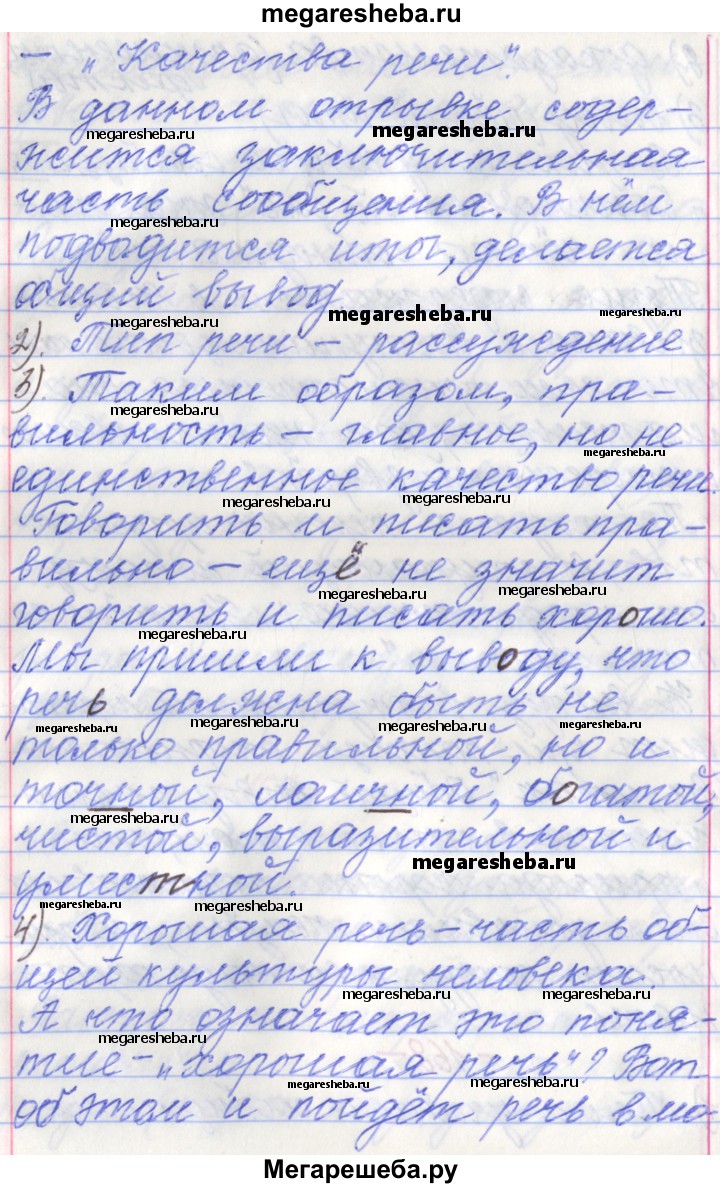 megaresheba.ru
– „Качества речи".
В данном отрывке содер-
megaresheba.ru megaresheba.ru
жится заключительная
часть сообщения. В нём
megaresheba.ru megaresheba.ru
подводится итог, делается
общий вывод
megaresheba.ru megaresheba.ru
2). Тип речи – рассуждение
3). Таким образом, пра-
megaresheba.ru
вильность – главное, но не
megaresheba.ru
единственное качество речи.
megaresheba.ru megaresheba.ru
Говорить и писать пра-
вильно – ещё не значит
megaresheba.ru megaresheba.ru
говорить и писать хорошо.
megaresheba.ru
Мы пришли к выводу, что
речь должна быть не
megaresheba.ru megaresheba.ru megaresheba.ru megaresheba.ru
только правильной, но и
точной, логичной, богатой,
megaresheba.ru
чистой, выразительной и
megaresheba.ru
уместной.
megaresheba.ru megaresheba.ru
4). Хорошая речь – часть об-
щей культуры человека.
megaresheba.ru megaresheba.ru
А что означает это поня-
megaresheba.ru
тие – „хорошая речь"? Вот
megaresheba.ru megaresheba.ru
об этом и пойдёт речь в мо-
Мегарешеба.ру